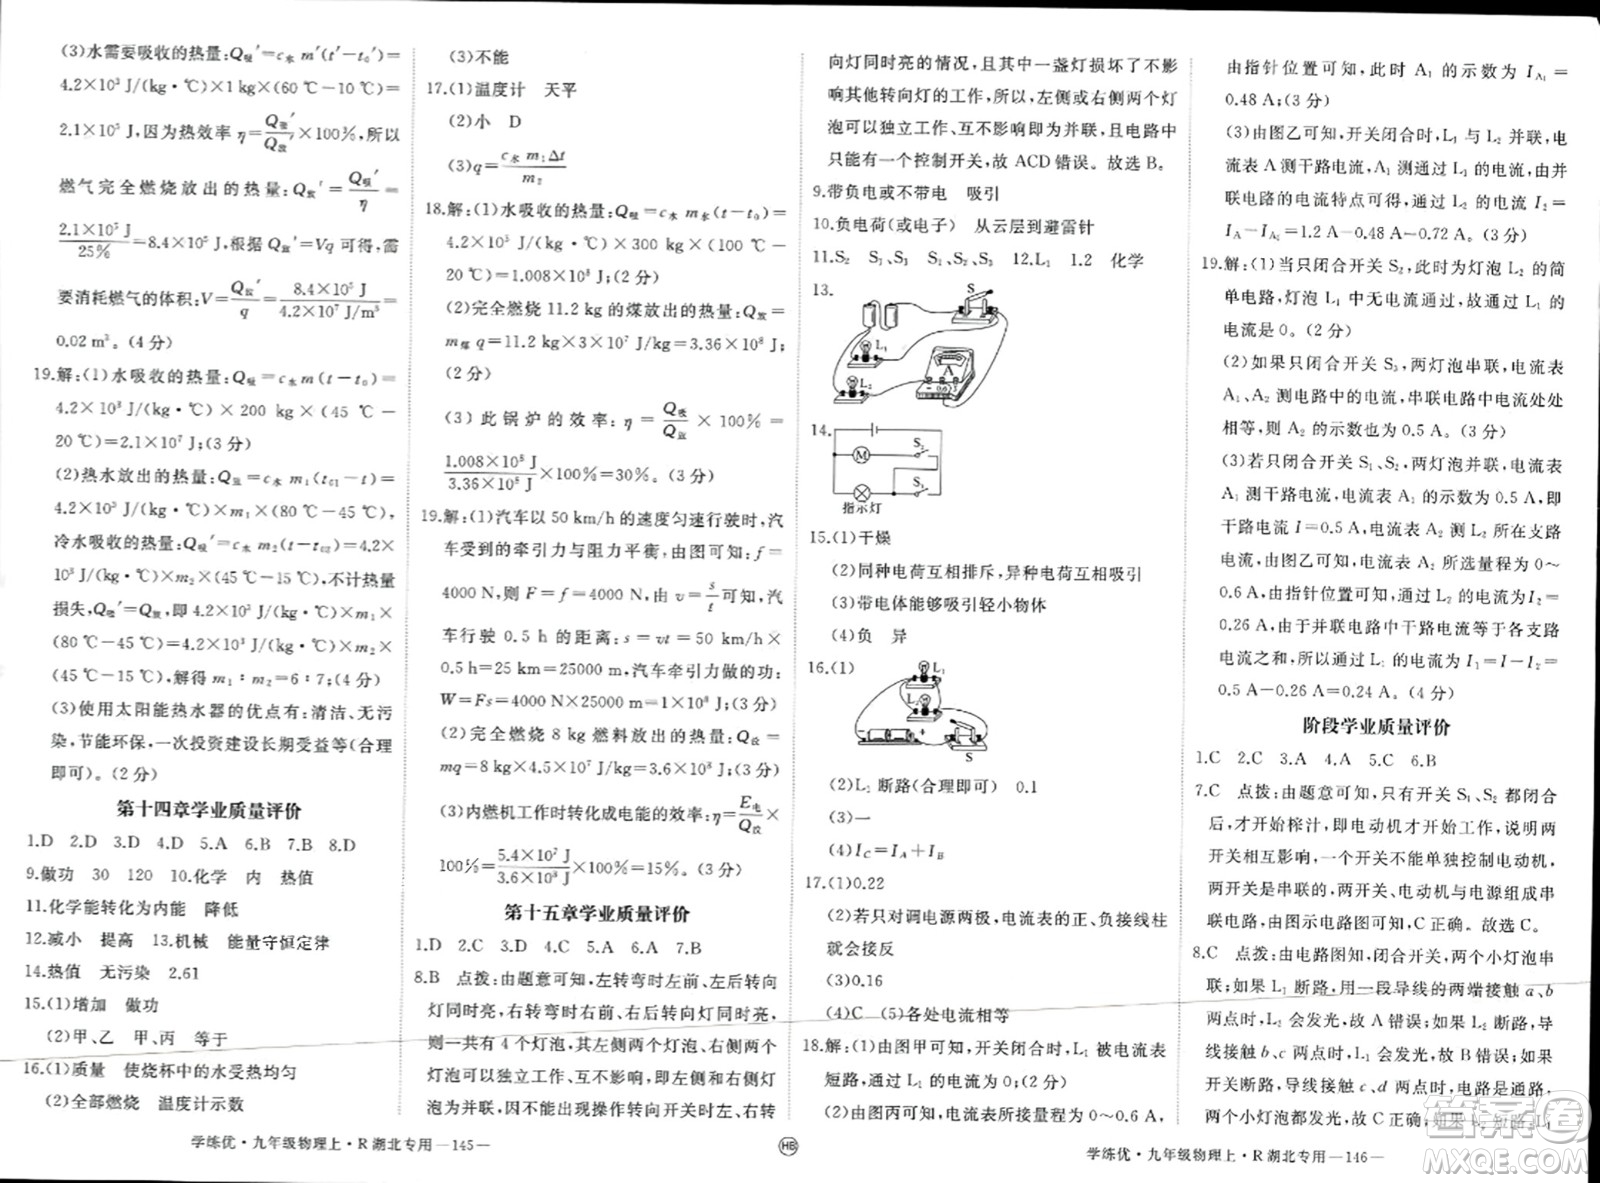 (3)水需要吸收的热量:Q吸′=c水 m′(t′-t₀′)=
4.2×10³ J/(kg·℃)×1 kg×(60 ℃-10 ℃)=
2.1×10⁵ J,因为热效率 η=Q吸′/Q放′×100%,所以
燃气完全燃烧放出的热量:Q放′=Q吸′/η=
2.1×10⁵ J/25%=8.4×10⁵ J,根据 Q放′=Vq 可得,需
要消耗燃气的体积:V=Q放′/q=8.4×10⁵ J/4.2×10⁷ J/m³=
0.02 m³。(4 分)
19.解:(1)水吸收的热量:Q吸=c水 m(t-t₀)=
4.2×10³ J/(kg·℃)×200 kg×(45 ℃-
20 ℃)=2.1×10⁷ J;(3 分)
(2)热水放出的热量:Q放=c水 m₁(t₀₁-t)=
4.2×10³ J/(kg·℃)×m₁×(80 ℃-45 ℃),
冷水吸收的热量:Q吸′=c水 m₂(t-t₀₂)=4.2×
10³ J/(kg·℃)×m₂×(45 ℃-15 ℃),不计热量
损失,Q吸′=Q放,即 4.2×10³ J/(kg·℃)×m₁×
(80 ℃-45 ℃)=4.2×10³ J/(kg·℃)×m₂×
(45 ℃-15 ℃),解得 m₁∶m₂=6∶7;(4 分)
(3)使用太阳能热水器的优点有:清洁、无污
染,节能环保,一次投资建设长期受益等(合理
即可)。(2 分)
第十四章学业质量评价
1.D 2.D 3.D 4.D 5.A 6.B 7.B 8.D
9.做功 30 120 10.化学 内 热值
11.化学能转化为内能 降低
12.减小 提高 13.机械 能量守恒定律
14.热值 无污染 2.61
15.(1)增加 做功
(2)甲、乙 甲、丙 等于
16.(1)质量 使烧杯中的水受热均匀
(2)全部燃烧 温度计示数
(3)不能
17.(1)温度计 天平
(2)小 D
(3)q=c水 m₁Δt/m₂
18.解:(1)水吸收的热量:Q吸=c水 m水(t-t₀)=
4.2×10³ J/(kg·℃)×300 kg×(100 ℃-
20 ℃)=1.008×10⁸ J;(2 分)
(2)完全燃烧 11.2 kg的煤放出的热量:Q放=
m煤 q=11.2 kg×3×10⁷ J/kg=3.36×10⁸ J;
(2 分)
(3)此锅炉的效率:η=Q吸/Q放×100%=
1.008×10⁸ J/3.36×10⁸ J×100%=30%。(3 分)
19.解:(1)汽车以 50 km/h 的速度匀速行驶时,汽
车受到的牵引力与阻力平衡,由图可知:f=
4000 N,则 F=f=4000 N,由 v=s/t可知,汽
车行驶 0.5 h 的距离:s=vt=50 km/h×
0.5 h=25 km=25000 m,汽车牵引力做的功:
W=Fs=4000 N×25000 m=1×10⁸ J;(3 分)
(2)完全燃烧 8 kg 燃料放出的热量:Q放=
mq=8 kg×4.5×10⁷ J/kg=3.6×10⁸ J;(2 分)
(3)内燃机工作时转化成电能的效率:η=E电/Q放×
100%=5.4×10⁷ J/3.6×10⁸ J×100%=15%。(3 分)
第十五章学业质量评价
1.D 2.C 3.D 4.C 5.A 6.A 7.B
8.B 点拨:由题意可知,左转弯时左前、左后转向
灯同时亮,右转弯时右前、右后转向灯同时亮,
则一共有 4 个灯泡,左侧两个灯泡、右侧两个灯
泡可以独立工作、互不影响,即左侧和右侧灯
泡为并联,因不能出现操作转向开关时,左右转
向灯同时亮的情况,且其中一盏灯损坏了不影
响其他转向灯的工作,所以,左侧或右侧两个灯
泡可以独立工作、互不影响即为并联,且电路中
只能有一个控制开关,故 ACD 错误。故选 B。
9.带负电或不带电 吸引
10.负电荷(或电子) 从云层到避雷针
11.S₂ S₁、S₃ S₂、S₃ 12.L₁ 1.2 化学
13.
S
L₁
A
- 0.6 3
L₂
14.
M
S₂
S₁
指示灯
15.(1)干燥
(2)同种电荷互相排斥,异种电荷互相吸引
(3)带电体能够吸引轻小物体
(4)负 异
16.(1)
L₁
L₂
+
S
(2)L₁ 断路(合理即可) 0.1
(3)一
(4)I_C=I_A+I_B
17.(1)0.22
(2)若只对调电源两极,电流表的正、负接线柱
就会接反
(3)0.16
(4)C (5)各处电流相等
18.解:(1)由图甲可知,开关闭合时,L₁ 被电流表
短路,通过 L₁ 的电流为 0;(2 分)
(2)由图丙可知,电流表所接量程为 0~0.6 A,
由指针位置可知,此时 A₁ 的示数为 I_A₁=
0.48 A;(3 分)
(3)由图乙可知,开关闭合时,L₁ 与 L₂ 并联,电
流表 A 测干路电流,A₁ 测通过 L₁ 的电流,由并
联电路的电流特点可得,通过 L₂ 的电流 I₂=
I_A-I_A₁=1.2 A-0.48 A=0.72 A。(4 分)
19.解:(1)当只闭合开关 S₂,此时为灯泡 L₂ 的简
单电路,灯泡 L₁ 中无电流通过,故通过 L₁ 的
电流是 0。(2 分)
(2)如果只闭合开关 S₃,两灯泡串联,电流表
A₁、A₂ 测电路中的电流,串联电路中电流处处
相等,则 A₂ 的示数也为 0.5 A。(3 分)
(3)若只闭合开关 S₁、S₂,两灯泡并联,电流表
A₁ 测干路电流,电流表 A₁ 的示数为 0.5 A,即
干路电流 I=0.5 A,电流表 A₂ 测 L₂ 所在支路
电流,由图乙可知,电流表 A₂ 所选量程为 0~
0.6 A,由指针位置可知,电流表的示数为I₂=
0.26 A,由于并联电路中干路电流等于各支路
电流之和,所以通过 L₁ 的电流为 I₁=I-I₂=
0.5 A-0.26 A=0.24 A。(4 分)
阶段学业质量评价
1.C 2.C 3.A 4.A 5.C 6.B
7.C 点拨:由题意可知,只有开关 S₁、S₂ 都闭合
后,才开始榨汁,即电动机才开始工作,说明两
开关相互影响,一个开关不能单独控制电动机,
两开关是串联的,两开关、电动机与电源组成串
联电路,由图示电路图可知,C 正确。故选 C。
8.C 点拨:由电路图知,闭合开关,两个小灯泡串
联;如果 L₁ 断路,用一段导线的两端接触 a、b
两点时,L₂ 会发光,故 A 错误;如果 L₂ 断路,导
线接 b、c 两点时,L₁ 会发光,故 B 错误;如果
开关断路,导线接触 c、d 两点时,电路是通路,
两个小灯泡都发光,故 C 正确;
学练优·九年级物理上·R 湖北专用—145—
HB
学练优·九年级物理上·R 湖北专用—146—